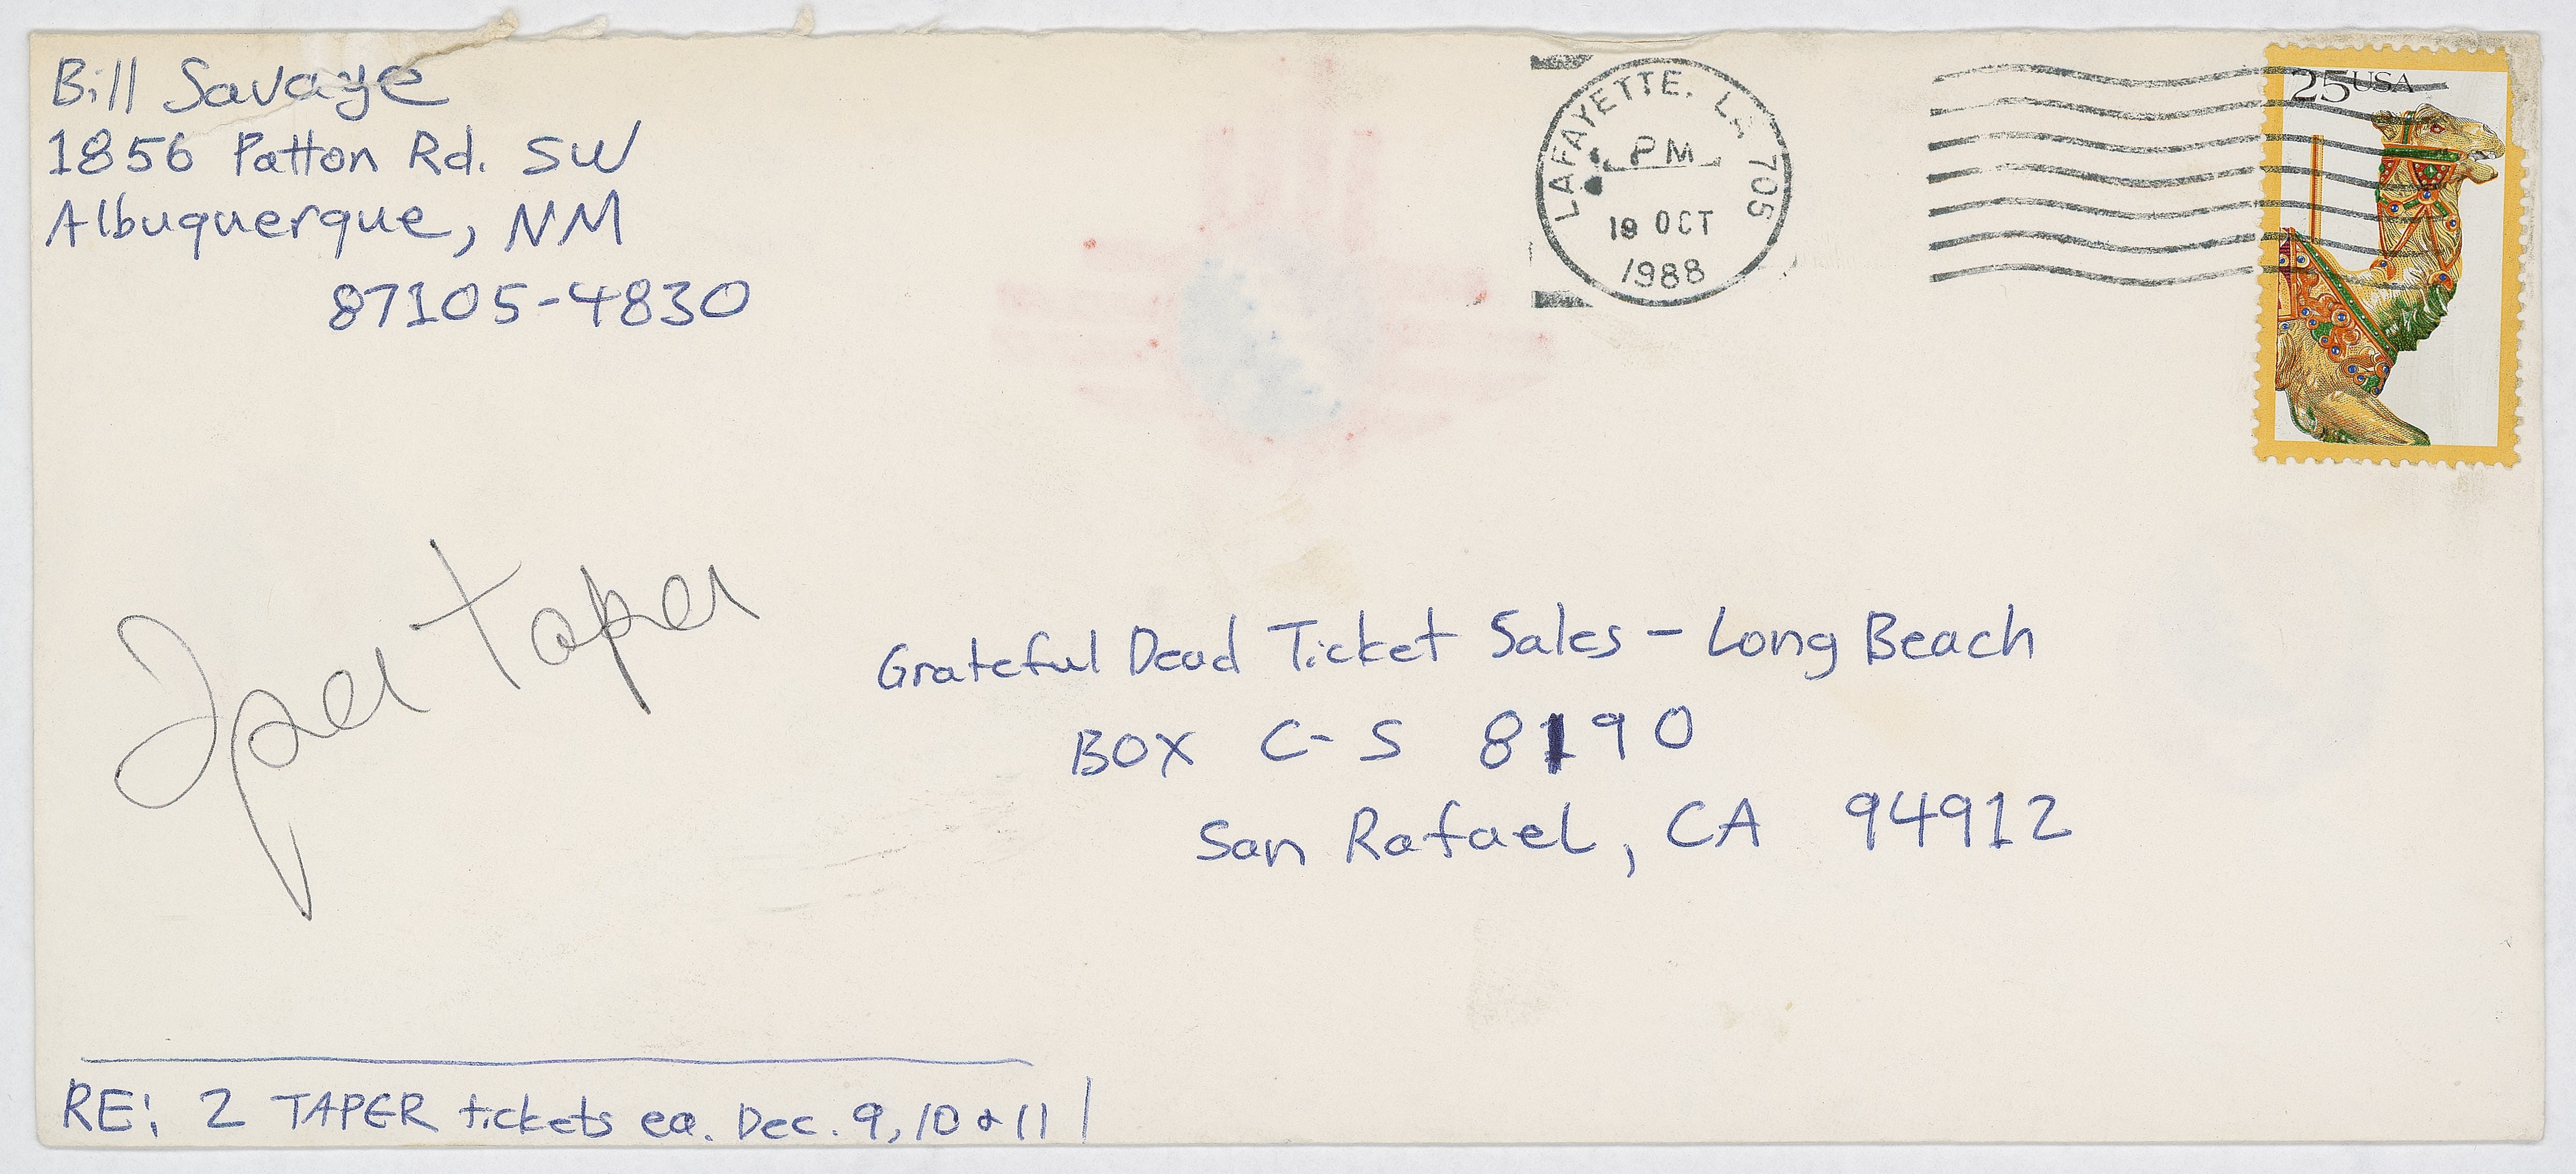 Bill Savage
1856 Patton Rd. SW
Albuquerque, NM
87105-4830
LAFAYETTE, LA 705
PM
19 OCT
1988
25 USA
taper
Grateful Dead Ticket Sales - Long Beach
BOX C-S 8190
San Rafael, CA 94912
RE: 2 TAPER tickets ea. Dec. 9, 10 & 11